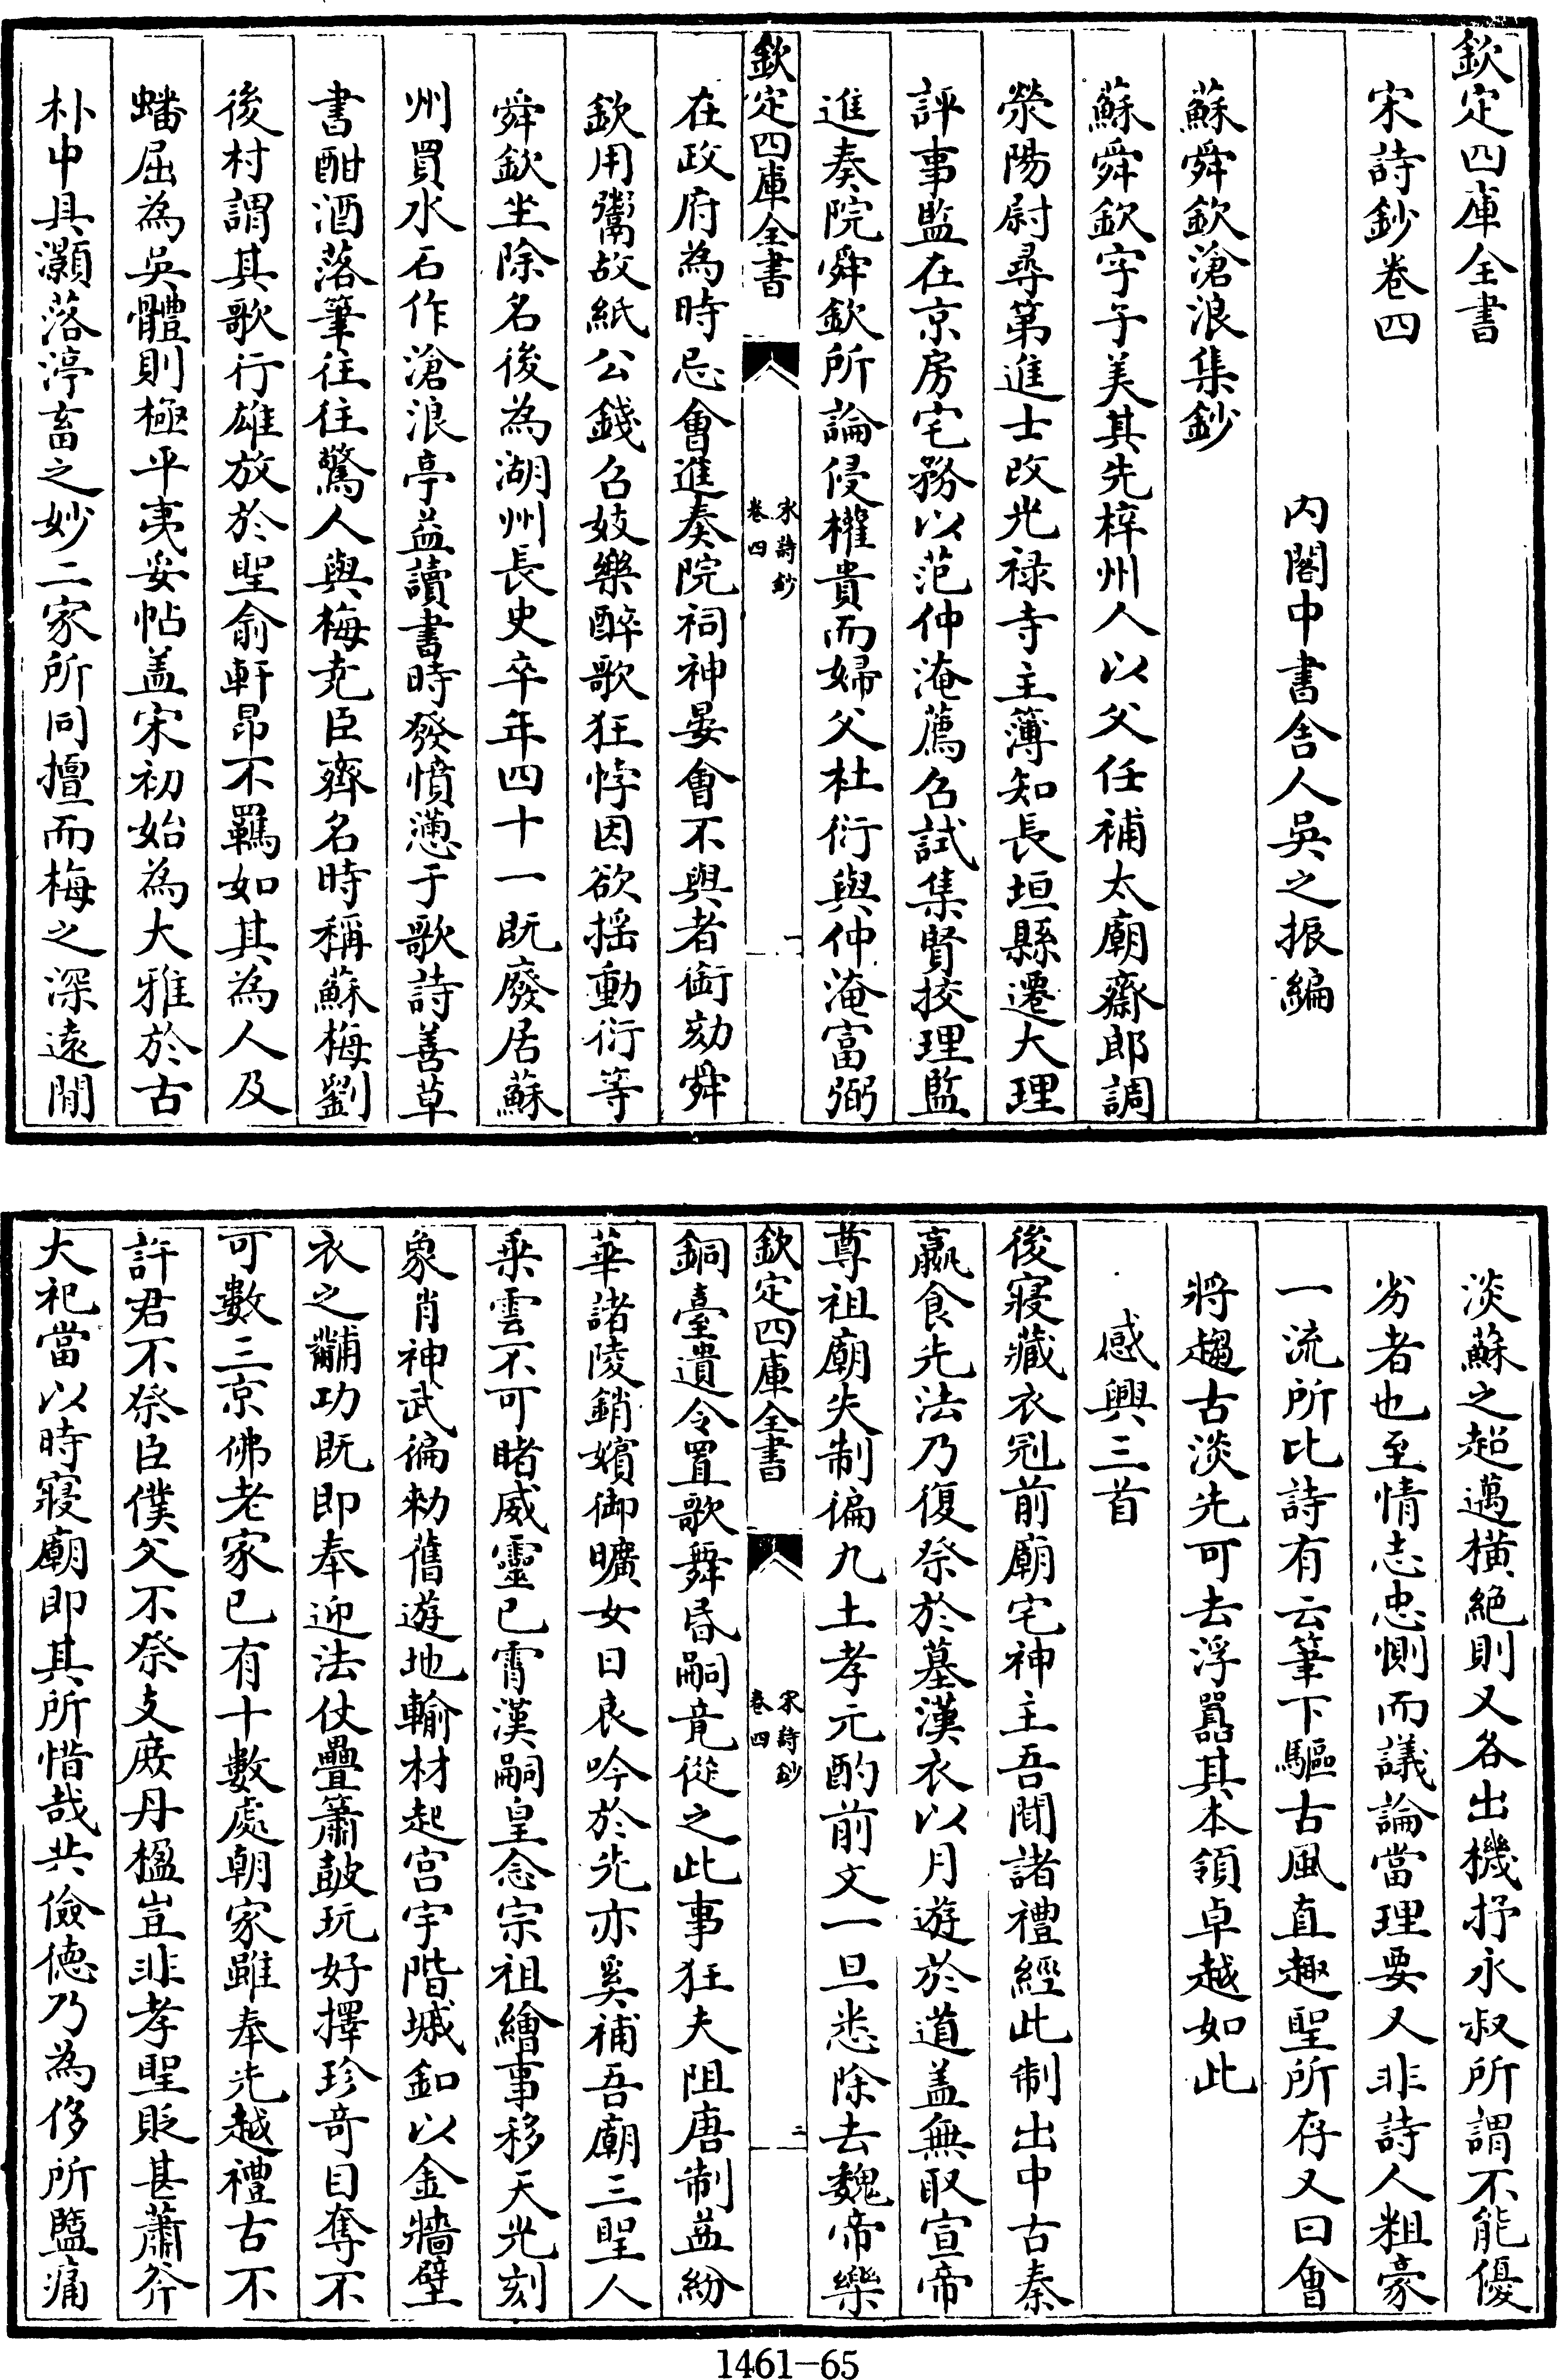 欽定四庫全書
宋詩鈔卷四
內閣中書舍人吳之振編
蘇舜欽滄浪集鈔
蘇舜欽字子美其先梓州人以父任補太廟齋郎調
滎陽尉尋第進士改光禄寺主簿知長垣縣遷大理
評事監在京房宅務以范仲淹薦召試集賢挍理監
進奏院舜欽所論侵權貴而婦父杜衍與仲淹富弼
欽定四庫全書
宋詩鈔
卷四
一
在政府為時忌會進奏院祠神晏會不與者銜劾舜
欽用鬻故紙公錢召妓樂醉歌狂悖因欲揺動衍等
舜欽坐除名後為湖州長史卒年四十一既廢居蘇
州買水石作滄浪亭益讀書時發憤懣于歌詩善草
書酣酒落筆往往驚人與梅堯臣齊名時稱蘇梅劉
後村謂其歌行雄放於聖俞軒昂不羈如其為人及
蟠屈為吳體則極平夷妥帖盖宋初始為大雅於古
朴中具灝落渟畜之妙二家所同擅而梅之深遠閒
淡蘇之超邁横絶則又各出機抒永叔所謂不能優
劣者也至情志忠惻而議論當理要又非詩人粗豪
一流所比詩有云筆下驅古風直趣聖所存又曰會
將趨古淡先可去浮囂其本領卓越如此
感興三首
後寢藏衣冠前廟宅神主吾聞諸禮經此制出中古秦
嬴食先法乃復祭於墓漢衣以月遊於道盖無取宣帝
尊祖廟失制徧九土孝元酌前文一旦悉除去魏帝樂
欽定四庫全書
宋詩鈔
卷四
二
銅臺遺令置歌舞昏嗣竟從之此事狂夫阻唐制益紛
華諸陵銷嬪御曠女日哀吟於先亦奚補吾廟三聖人
乗雲不可睹威靈已霄漢嗣皇念宗祖繪事移天光刻
象肖神武徧勅舊遊地輸材起宫宇階墄釦以金牆壁
衣之黼功既即奉迎法仗疊簫皷玩好擇珍奇目奪不
可數三京佛老家已有十數處朝家雖奉先越禮古不
許君不祭臣僕父不祭支庶丹楹豈非孝聖貶甚蕭斧
大祀當以時寢廟即其所惜哉共儉德乃為侈所蠱痛
1461-65